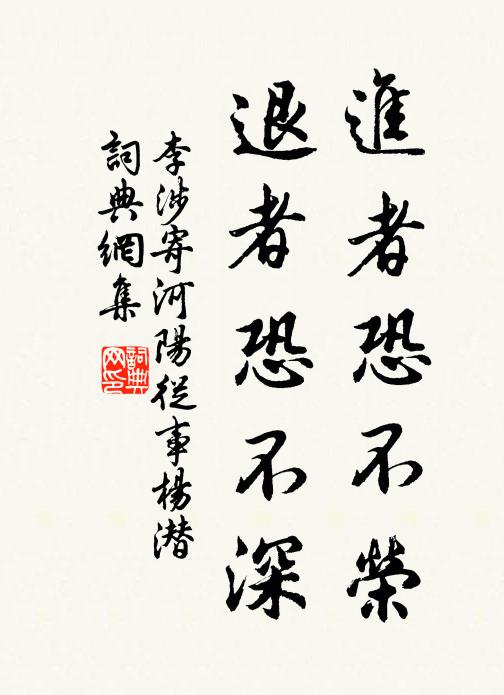 進者恐不榮
退者恐不深
李涉寄河陽從事楊潛
詞典網集
詞典网印